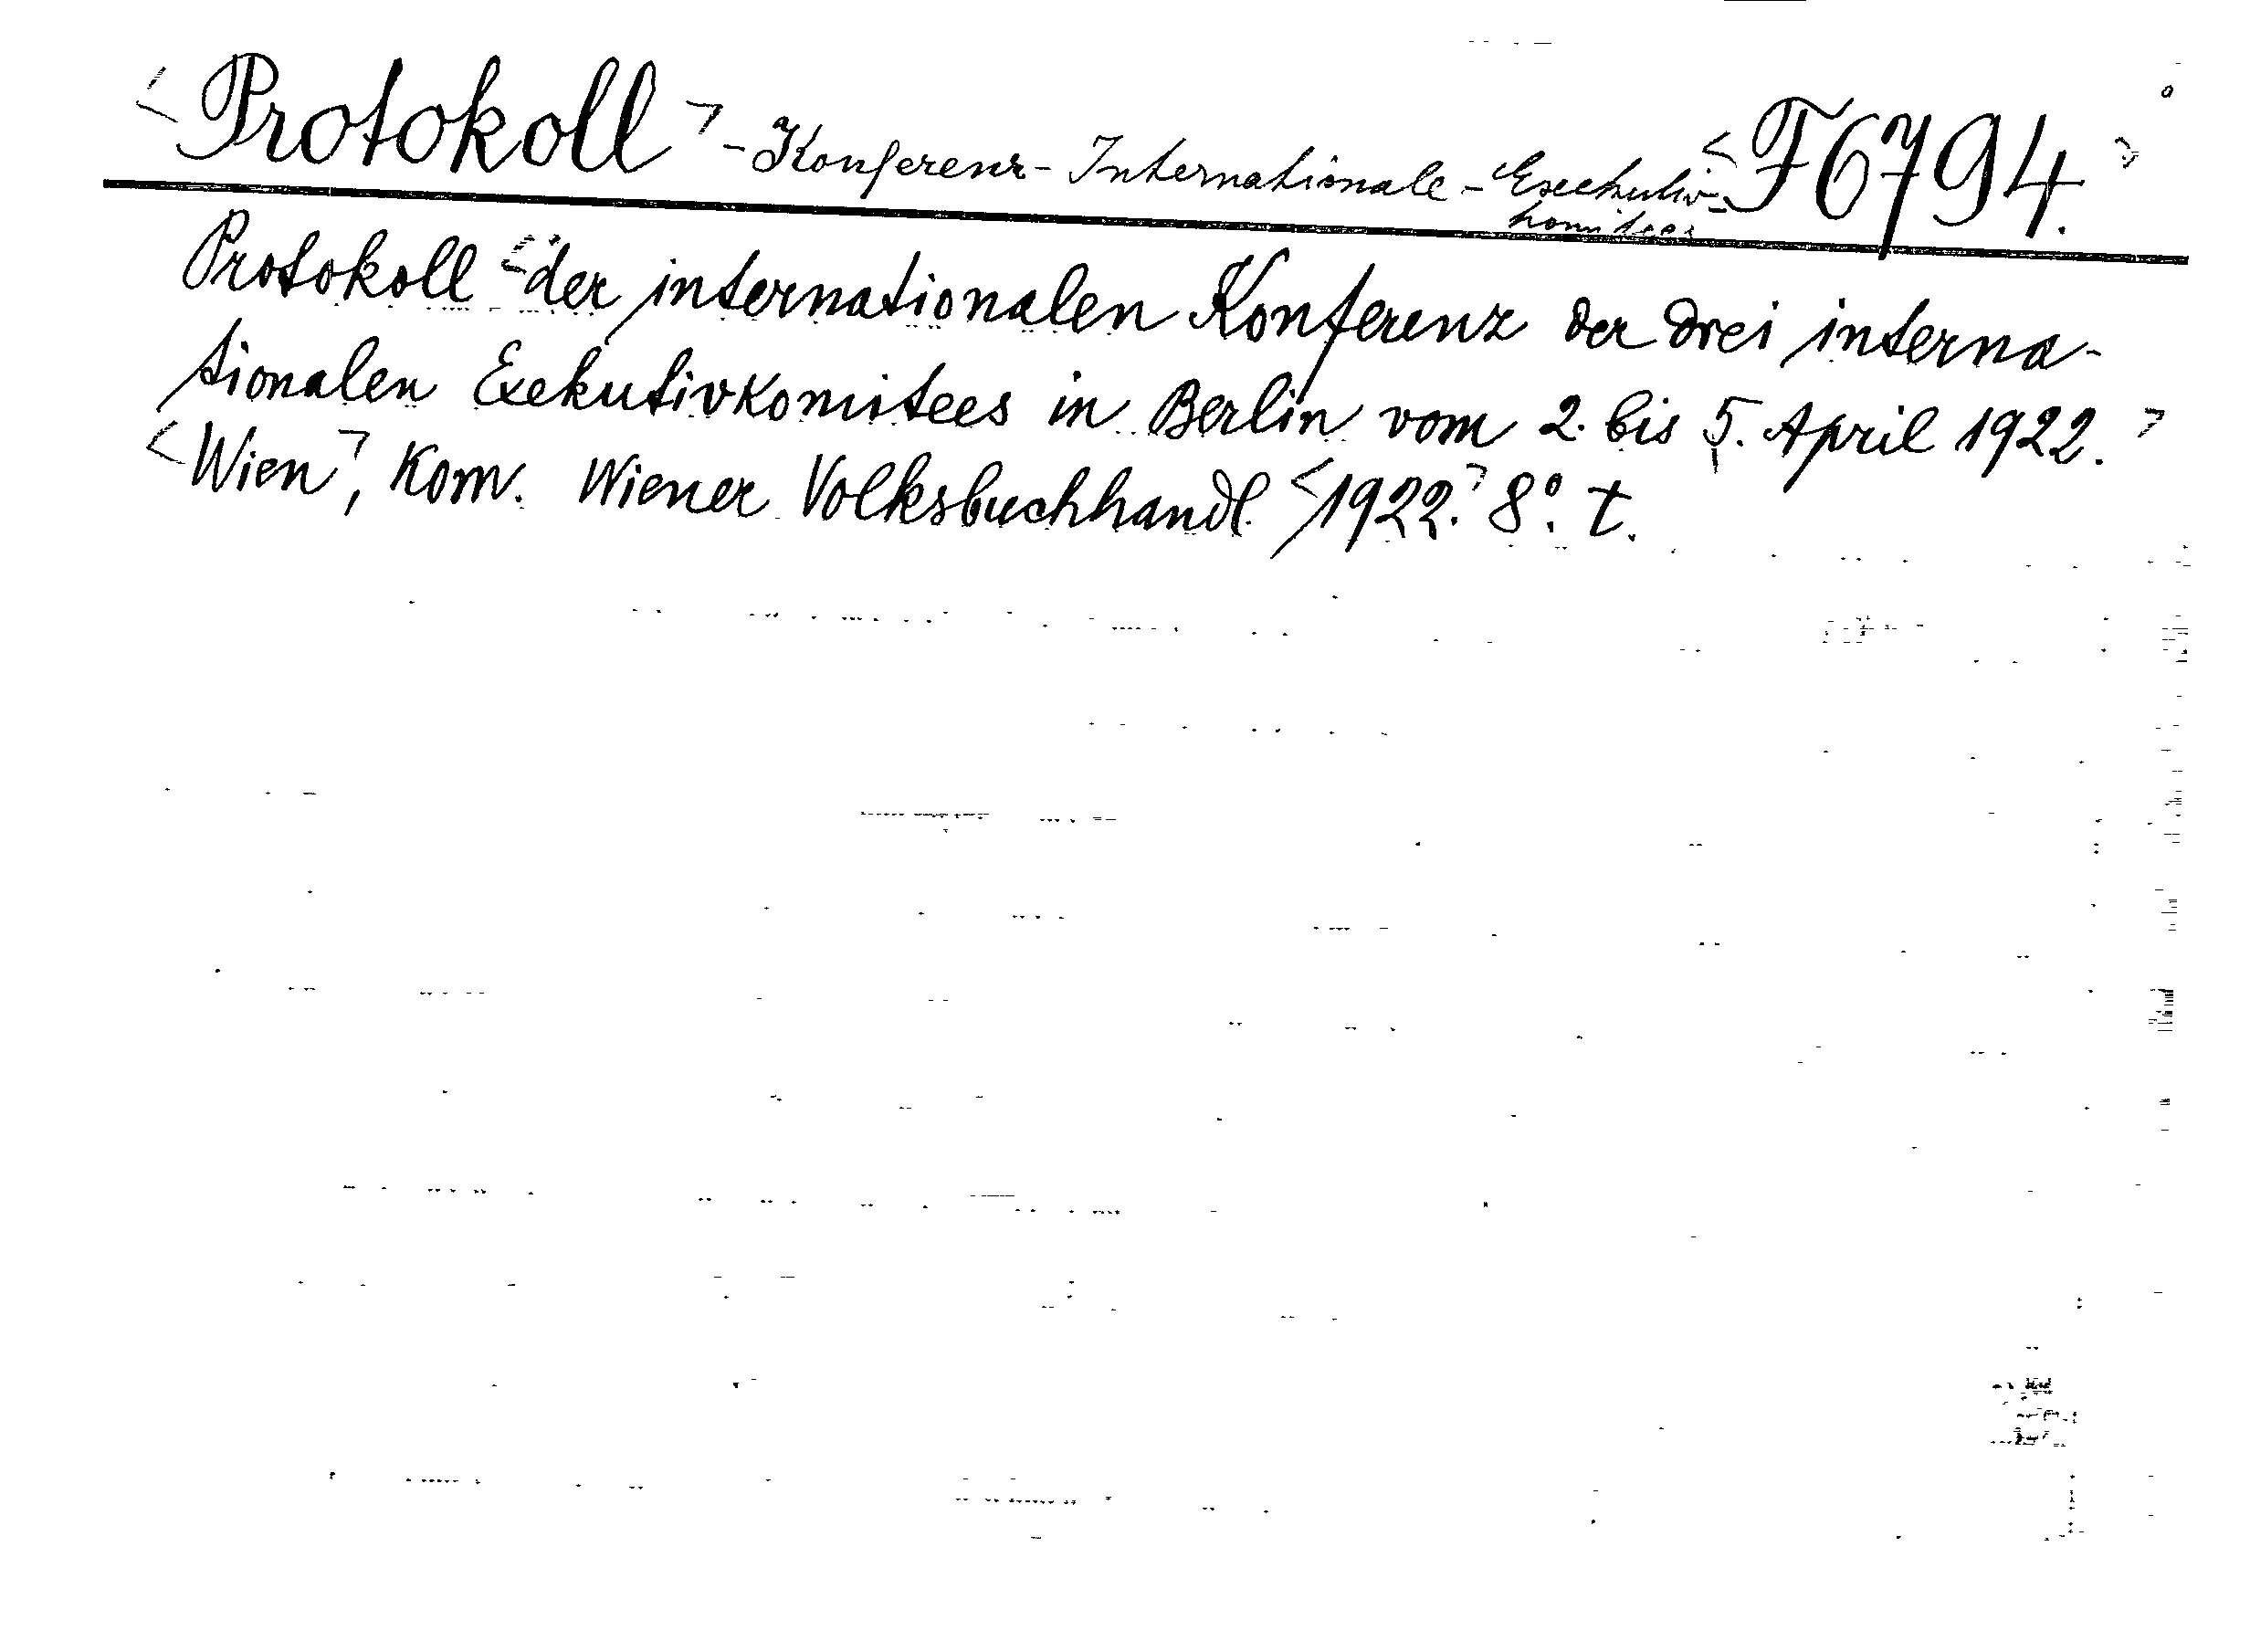 <Protokoll> - Konferenz - Internationale - Exekutiv- <F6794.>
komitees
Protokoll <der internationalen Konferenz der drei interna-
tionalen Exekutivkomitees in Berlin vom 2. bis 5. April 1922.>
<Wien>, Kom. Wiener Volksbuchhandl. <1922.> 8°. t.